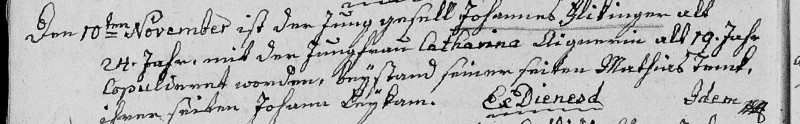 Den 10ten November ist der Jung gesell Johannes Zlitinger alt
24. Jahr, mit der Jungfrau Catharina Aignerin alt 19. Jahr
Copulderet worden, beystand seiner seiten Mathias
ihrer seiten Johann Beykam. Ex Dienesd Idem